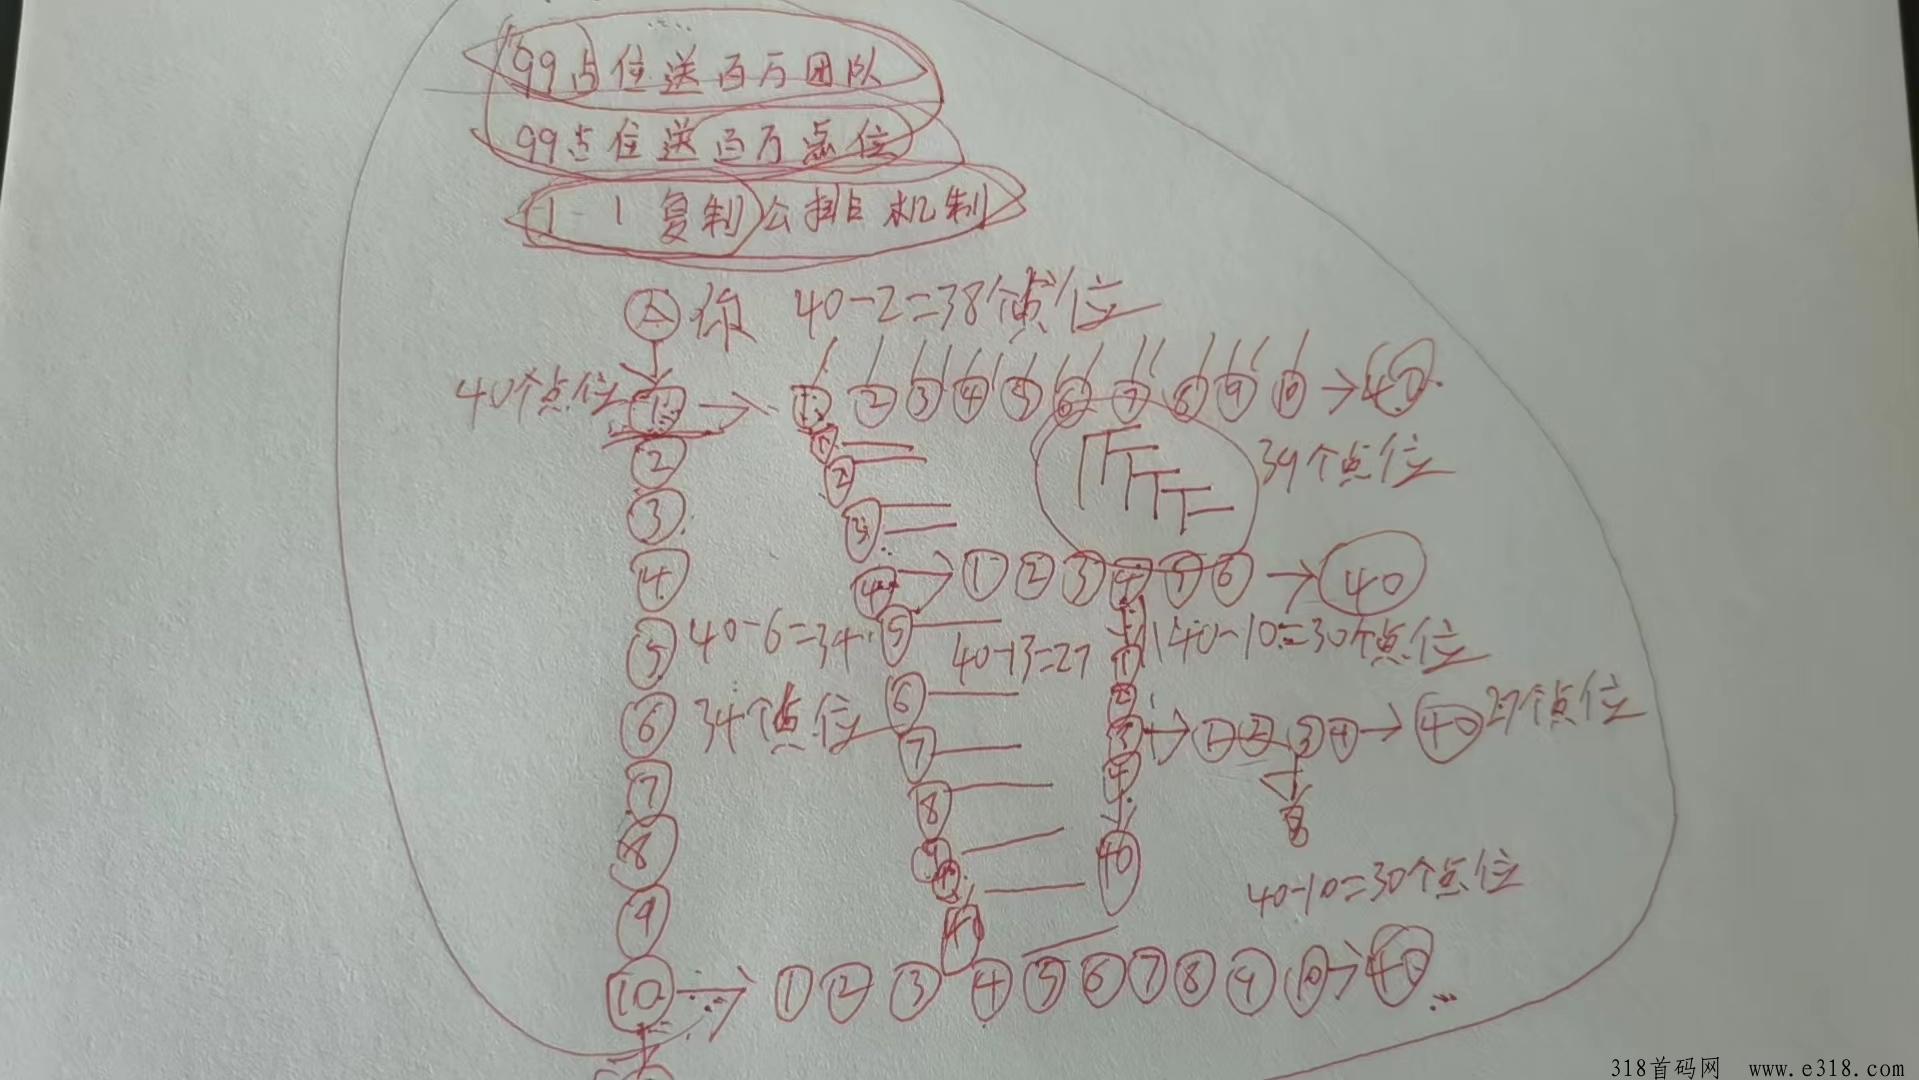 99占位送百万团队
99点位送百万点位
1-1复制公排机制
大 你 40-2=38个点位
40个点位 1 → 1 2 3 4 5 6 7 8 9 10 → 40
1
2 2 39个点位
3 3
4 4 → 1 2 3 4 5 6 → 40
5 40-6=34 5 40-13=27 40-10=30个点位
1
6 34个点位 6 2
7 7 3 → 1 2 3 4 → 40 27个点位
8 8 4
9 9 40
40 40-10=30个点位
10 → 1 2 3 4 5 6 7 8 9 10 → 40
318首码网 www.e318.com